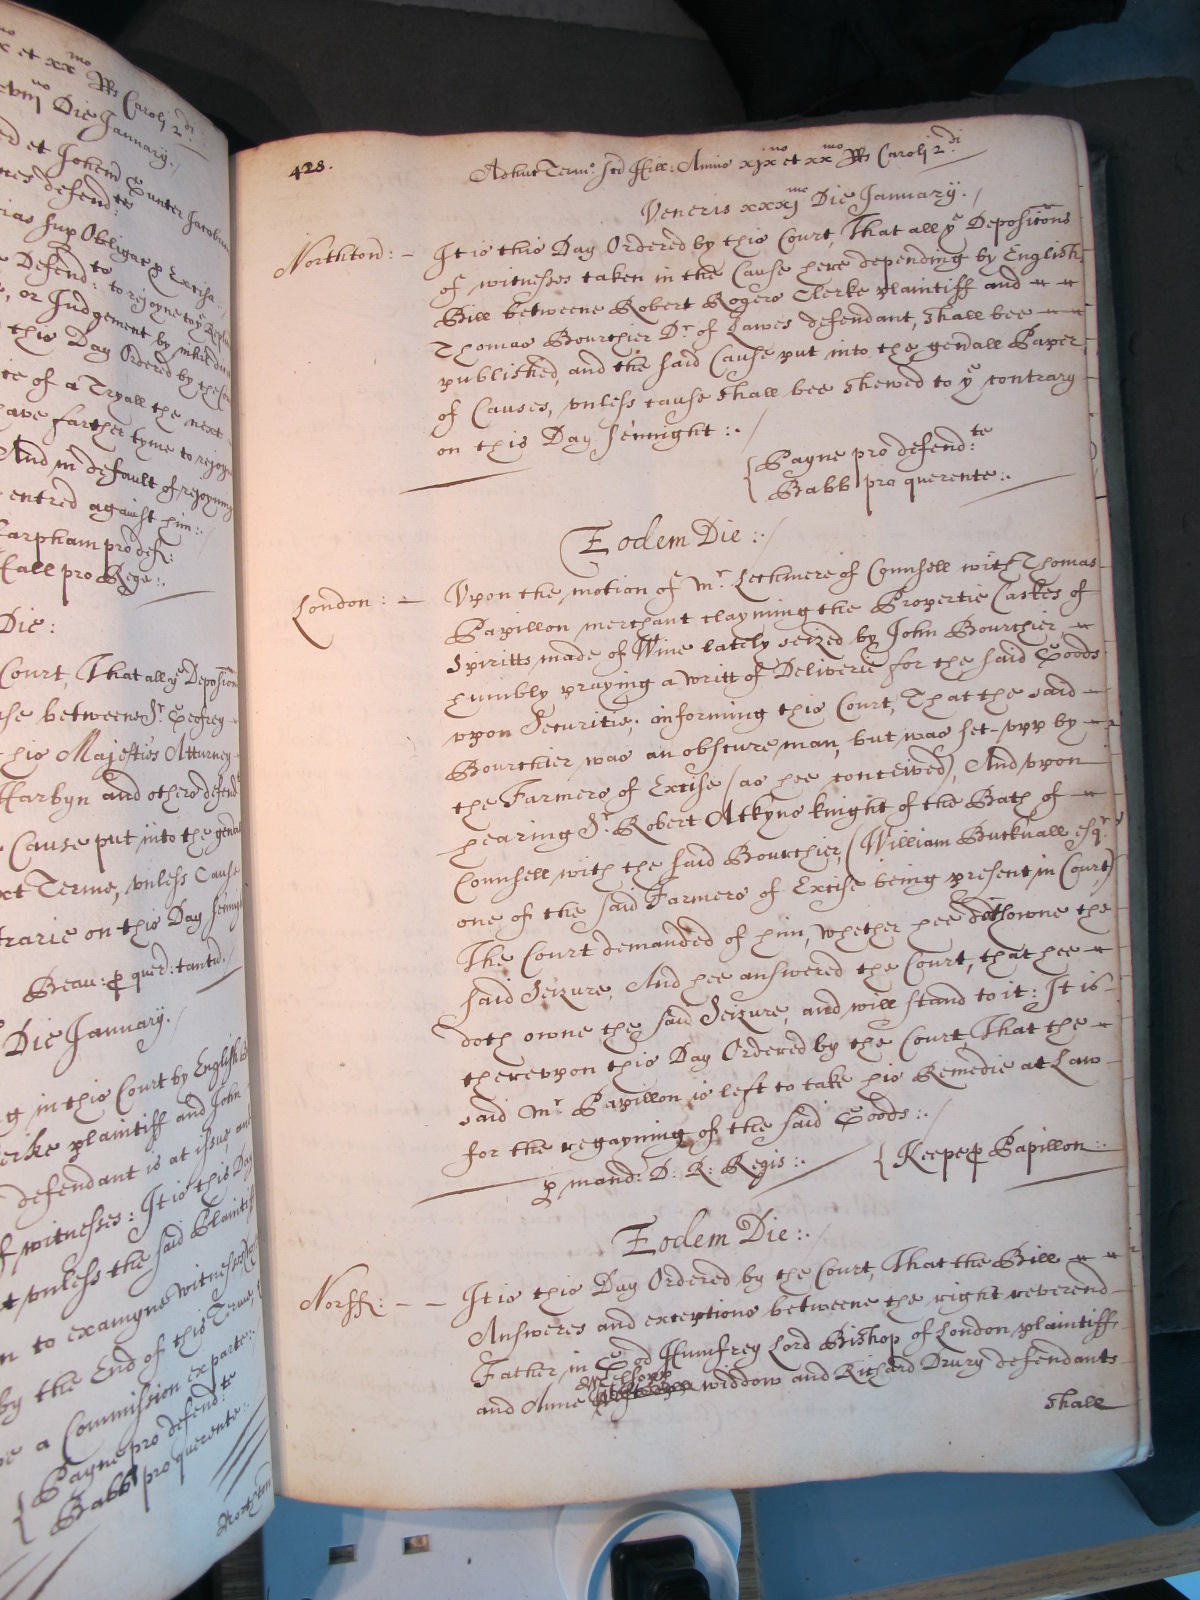 o et xx mo Rs Caroli 2 di
Die January./
et Johem Gunter Jacobum
nes defend: tes
cias sup Obligac p Excise
Defend: to rejoyne to ye Repl
, or Judgement by nihil
this Day Ordered by the
ce of a Tryall the next
have farther tyme to rejoyn
And in default of rejoyning
entred against him:.
arpham pro def:
Call pro Rege:.
Die:
Court, That all ye Deposicons
se betweene Sr Geofrey
his Majesties Atturney
Harbyn and others defend
Cause put into the genall
xt Terme, unless Cause
trarie on this Day Sennight
Beau: p quer: tantu./
Die January./
g in this Court by English
erke plaintiff and John
defendant is at issue, and
f witnesses: It is this Day
t unless the said Plaintiff
n to examyne witnesses
by the End of this Terme,
e a Commission ex parte:.
Payne pro defend: te
Babb pro querente:.
Northton
428.
Adhuc Termo Scd Hill: Anno xix no et xx mo Rs Caroli 2 di
Veneris xxxj mo Die January./
Northton: - It is this Day Ordered by this Court, That all ye Deposicons
of witnesses taken in the Cause here depending by English
Bill betweene Robert Rogers Clerke plaintiff and
Thomas Bourchier Dr of Lawes defendant, shall bee
published, and the said Cause put into the genall Paper
of Causes, unless cause shall bee shewed to ye contrary
on this Day Sennight:./
{Payne pro defend: te
Babb pro querente:.
Eodem Die:./
London: - Vpon the motion of Mr Lechmere of Counsell with Thomas
Papillon merchant clayming the Propertie Caskes of
Spiritts made of Wine lately seized by John Bourchier
humbly praying a writt of Deliverie for the said Goods
upon Securitie; informing this Court, That the said
Bourchier was an obscure man, but was set-upp by
the Farmers of Excise (as hee conceived), And upon
hearing Sr Robert Atkyns knight of the Bath of
Counsell with the said Bourchier, (William Bucknall esqr
one of the said Farmers of Excise being present in Court)
The Court demanded of him, whether hee doth owne the
said Seizure, And hee answered the Court, that hee
doth owne the said Seizure, and will stand to it: It is
thereupon this Day Ordered by the Court, That the
said Mr Papillon is left to take his Remedie at Law
for the regayning of the said Goods:./
p mand: D: R: Regis:. {Keepe p Papillon:.
Eodem Die:./
Norff: - - It is this Day Ordered by the Court, That the Bill
Answeres and exceptions betweene the right reverend
Father in God Humfrey Lord Bishop of London plaintiff
and Anne widdow and Richard Drury defendants
shall